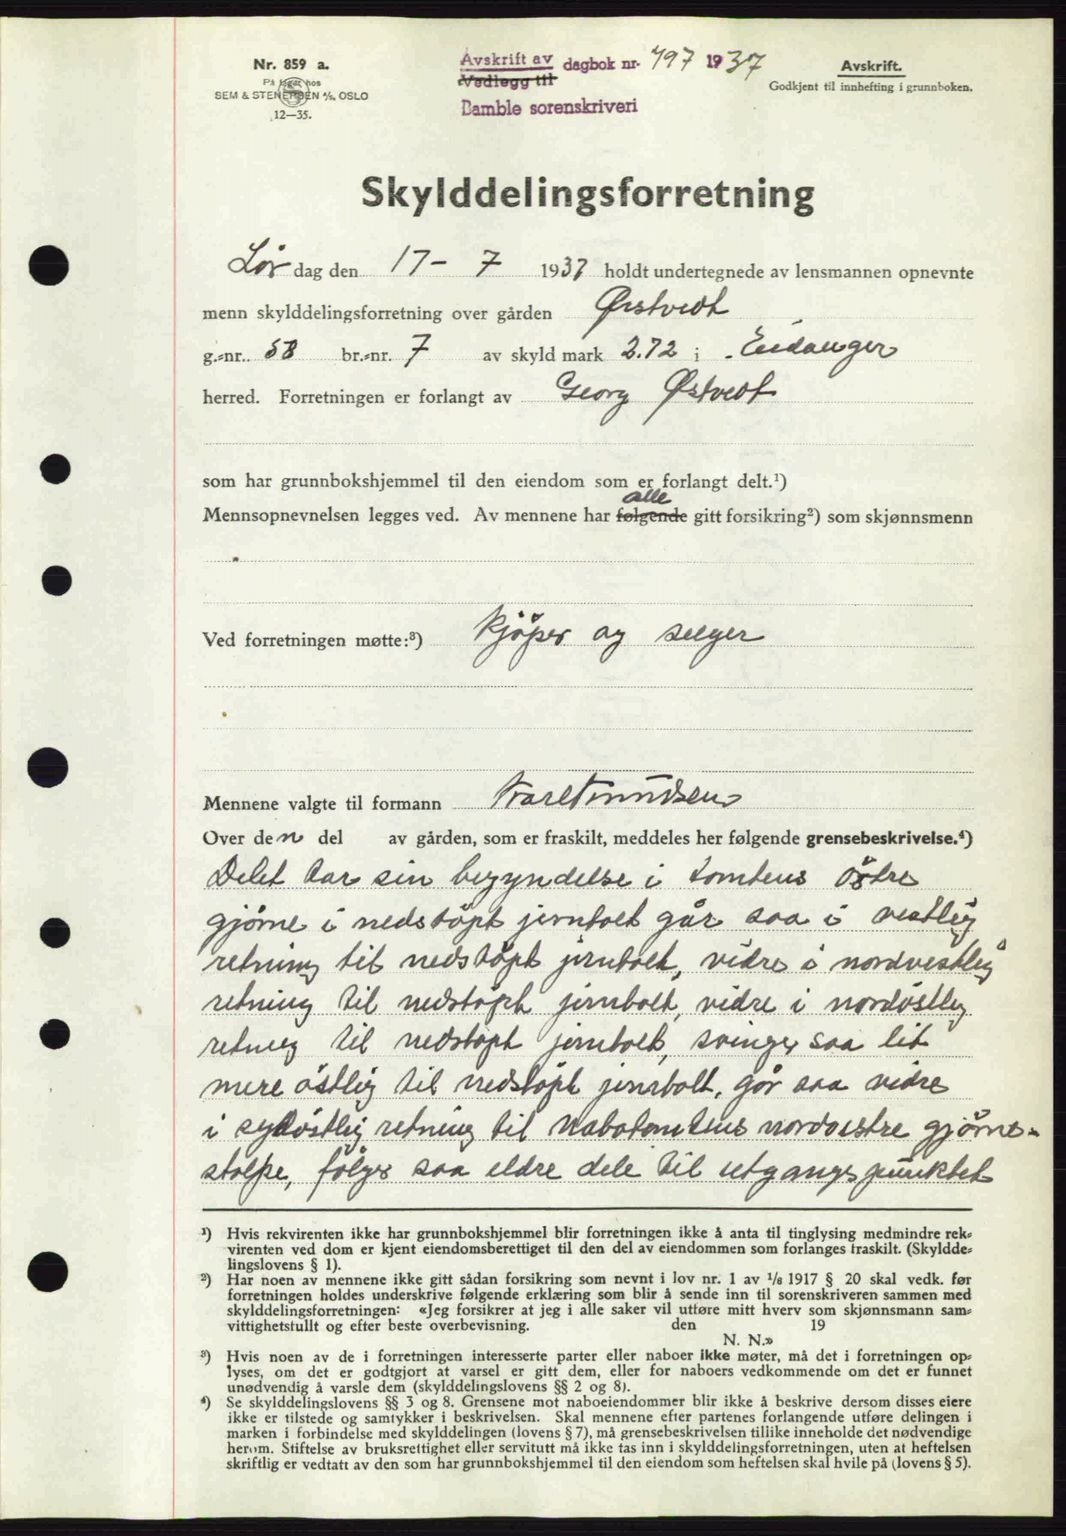 Nr. 859 a.
På lager hos
SEM & STENERSEN A/S, OSLO
12—35.
Avskrift av
Vedlegg til
dagbok nr. 797 1937
Bamble sorenskriveri
Avskrift.
Godkjent til innhefting i grunnboken.
Skylddelingsforretning
Lør dag den 17 - 7 1937 holdt undertegnede av lensmannen opnevnte
menn skylddelingsforretning over gården Østvedt
g.=nr. 58 br.=nr. 7 av skyld mark 2.72 i Eidanger
herred. Forretningen er forlangt av Georg Østvedt
som har grunnbokshjemmel til den eiendom som er forlangt delt.¹)
alle
Mennsopnevnelsen legges ved. Av mennene har følgende gitt forsikring²) som skjønnsmenn
Ved forretningen møtte:³) Kjøper og selger
Mennene valgte til formann
Over den del av gården, som er fraskilt, meddeles her følgende grensebeskrivelse.⁴)
Delet tar sin begyndelse i tomtens östre
gjörne i nedstöpt jernbolt går saa i vestlig
retning til nedstöpt jernbolt, vidre i nordvestlig
retning til nedstöpt jernbolt, vidre i nordöstlig
retning til nedstöpt jernbolt, svinger saa lit
mere östlig til nedstöpt jernbolt, går saa vidre
i sydöstlig retning til nabotomtens nordvestre gjörne-
stolpe, fölger saa eldre dele til utgangspunktet
¹) Hvis rekvirenten ikke har grunnbokshjemmel blir forretningen ikke å anta til tinglysing medmindre rek=
virenten ved dom er kjent eiendomsberettiget til den del av eiendommen som forlanges fraskilt. (Skyldde=
lingslovens § 1).
²) Har noen av mennene ikke gitt sådan forsikring som nevnt i lov nr. 1 av ¹/₈ 1917 § 20 skal vedk. før
forretningen holdes underskrive følgende erklæring som blir å sende inn til sorenskriveren sammen med
skylddelingsforretningen: «Jeg forsikrer at jeg i alle saker vil utføre mitt hverv som skjønnsmann sam=
vittighetsfullt og efter beste overbevisning. den 19
N. N.»
³) Hvis noen av de i forretningen interesserte parter eller naboer ikke møter, må det i forretningen op=
lyses, om det er godtgjort at varsel er gitt dem, eller for naboers vedkommende om det er funnet
unødvendig å varsle dem (skylddelingslovens §§ 2 og 8).
⁴) Se skylddelingslovens §§ 3 og 8. Grensene mot naboeiendommer blir ikke å beskrive dersom disses eiere
ikke er tilstede og samtykker i beskrivelsen. Skal mennene efter partenes forlangende utføre delingen i
marken i forbindelse med skylddelingen (lovens § 7), må grensebeskrivelsen tillike inneholde det nødvendige
herom. Stiftelse av bruksrettighet eller servitutt må ikke tas inn i skylddelingsforretningen, uten at heftelsen
skriftlig er vedtatt av den som har grunnbokshjemmel til den eiendom som heftelsen skal hvile på (lovens § 5).